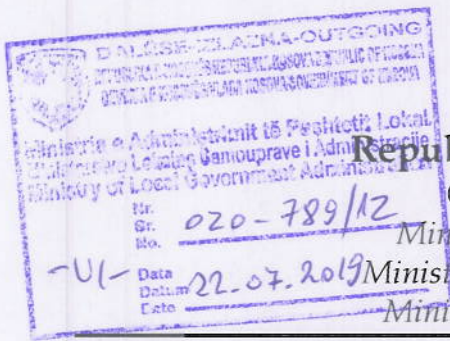 DALËSE-IZLAZNA-OUTGOING
Ministria e Administrimit të Pushtetit Lokal
Ministarstvo Lokalne Samouprave i Administracije
Ministry of Local Government Administration
Repu
Nr.
Br.
No. 020-789/12
Min
-U(- Data
Datum 22.07.2019
Date
Minis
Mini